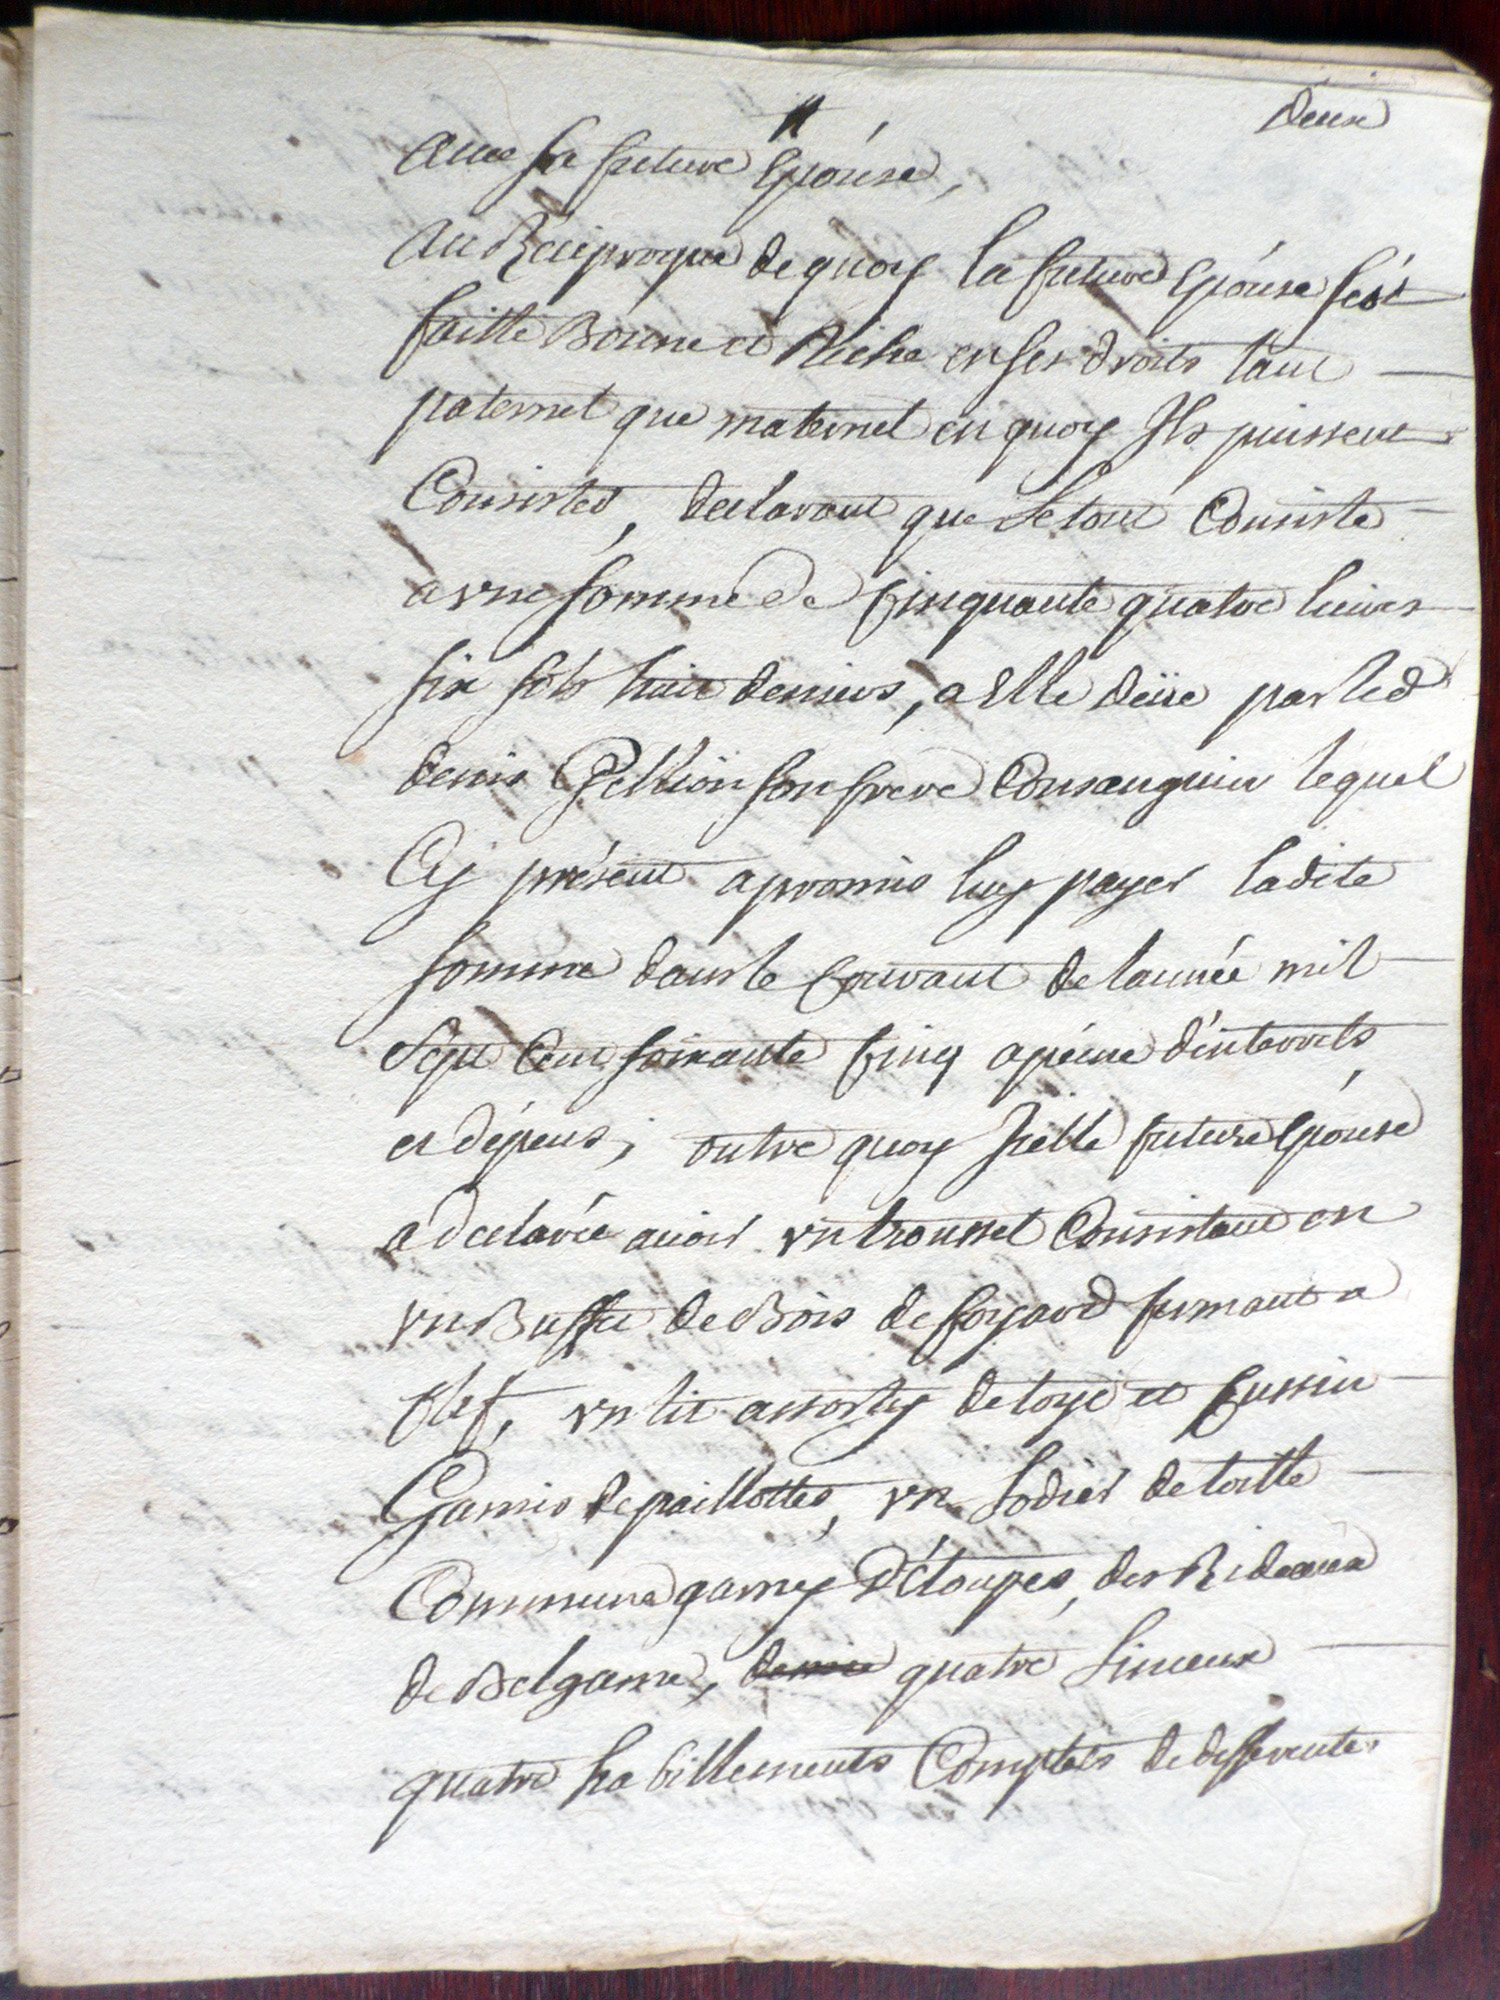 deux
avec sa future Epouse,
au Réciproque de quoy la future Epouse s'est
faitte Bonne et Riche en ses droits tant
paternel que maternel en quoy Ils puissent
Consister, declarant que Le tout Consiste
a vne somme de Cinquante quatre livres
six sols huit deniers, a Elle deüe par led
denis Pellion son frere Consanguin lequel
Cy présent a promis luy payer ladite
somme dans le Courant de l'année mil
Sept Cent soixante Cinq a peine d'interrets
et dépens; outre quoy Icelle future Epouse
a declarée avoir vn troussel Consistant en
vn Buffet de Bois de foyard fermant a
Clef, vn lit assorty de toye et Cussin
Garnis de paillottes, vn Lodier de toille
Commune garny D'Étoupes, des Rideaux
de Belgame, quatre Linceux
quatre habillements Complets de differentes